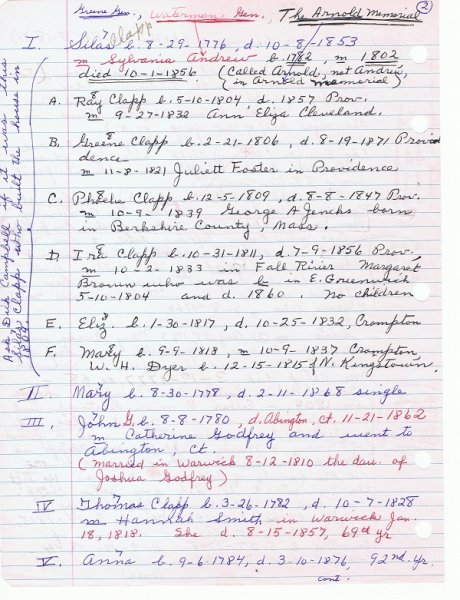 Greene Gen. Waterman Gen. The Arnold Memorial 2
I. Silas⁷ Clapp b. 8-29-1776, d. 10-8-1853
m Sylvania Andrew b. 1782, m 1802
died 10-1-1856. (Called Arnold, not Andrew,
in Arnold memorial)
A. Ray⁸ Clapp b. 5-10-1804, d. 1857 Prov.
m 9-27-1832 Ann Eliza Cleveland.
B. Greene⁸ Clapp b. 2-21-1806, d. 8-19-1871 Provi
dence
m 11-8-1821 Juliett Foster in Providence
C. Phebe⁸ Clapp b. 12-5-1809, d. 8-8-1847 Prov.
m 10-9-1839 George A Jencks born
in Berkshire County, Mass.
D. Ira⁸ Clapp b. 10-31-1811, d. 7-9-1856 Prov.
m 10-2-1833 in Fall River Margaret
Brown who was b in E. Greenwich
5-10-1804 and d. 1860. No children
E. Eliz⁸ b. 1-30-1817, d. 10-25-1832, Crompton
F. Mary⁸ b. 9-9-1818, m 10-9-1837 Crompton
W. H. Dyer b. 12-15-1815 of N. Kingstown.
II. Mary⁷ b. 8-30-1778, d. 2-11-1868 single
III. John⁷ G. b. 8-8-1780, d. Abington, Ct. 11-21-1862
m Catherine Godfrey and went to
Abington, Ct.
(married in Warwick 8-12-1810 the dau. of
Joshua Godfrey)
IV Thomas⁷ Clapp b. 3-26-1782, d. 10-7-1828
m Hannah Smith in Warwick Jan.
18, 1818. She d. 8-15-1857, 69th yr
V. Anna⁷ b. 9-6-1784, d. 3-10-1876, 92nd. yr.
cont.
Ask Dick Campbell if it was this
Silas⁷ Clapp who built the house in